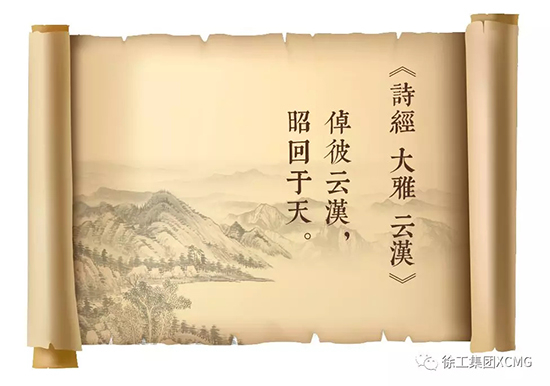 《詩經 大雅 云漢》
倬彼云漢，
昭回于天。
徐工集团XCMG